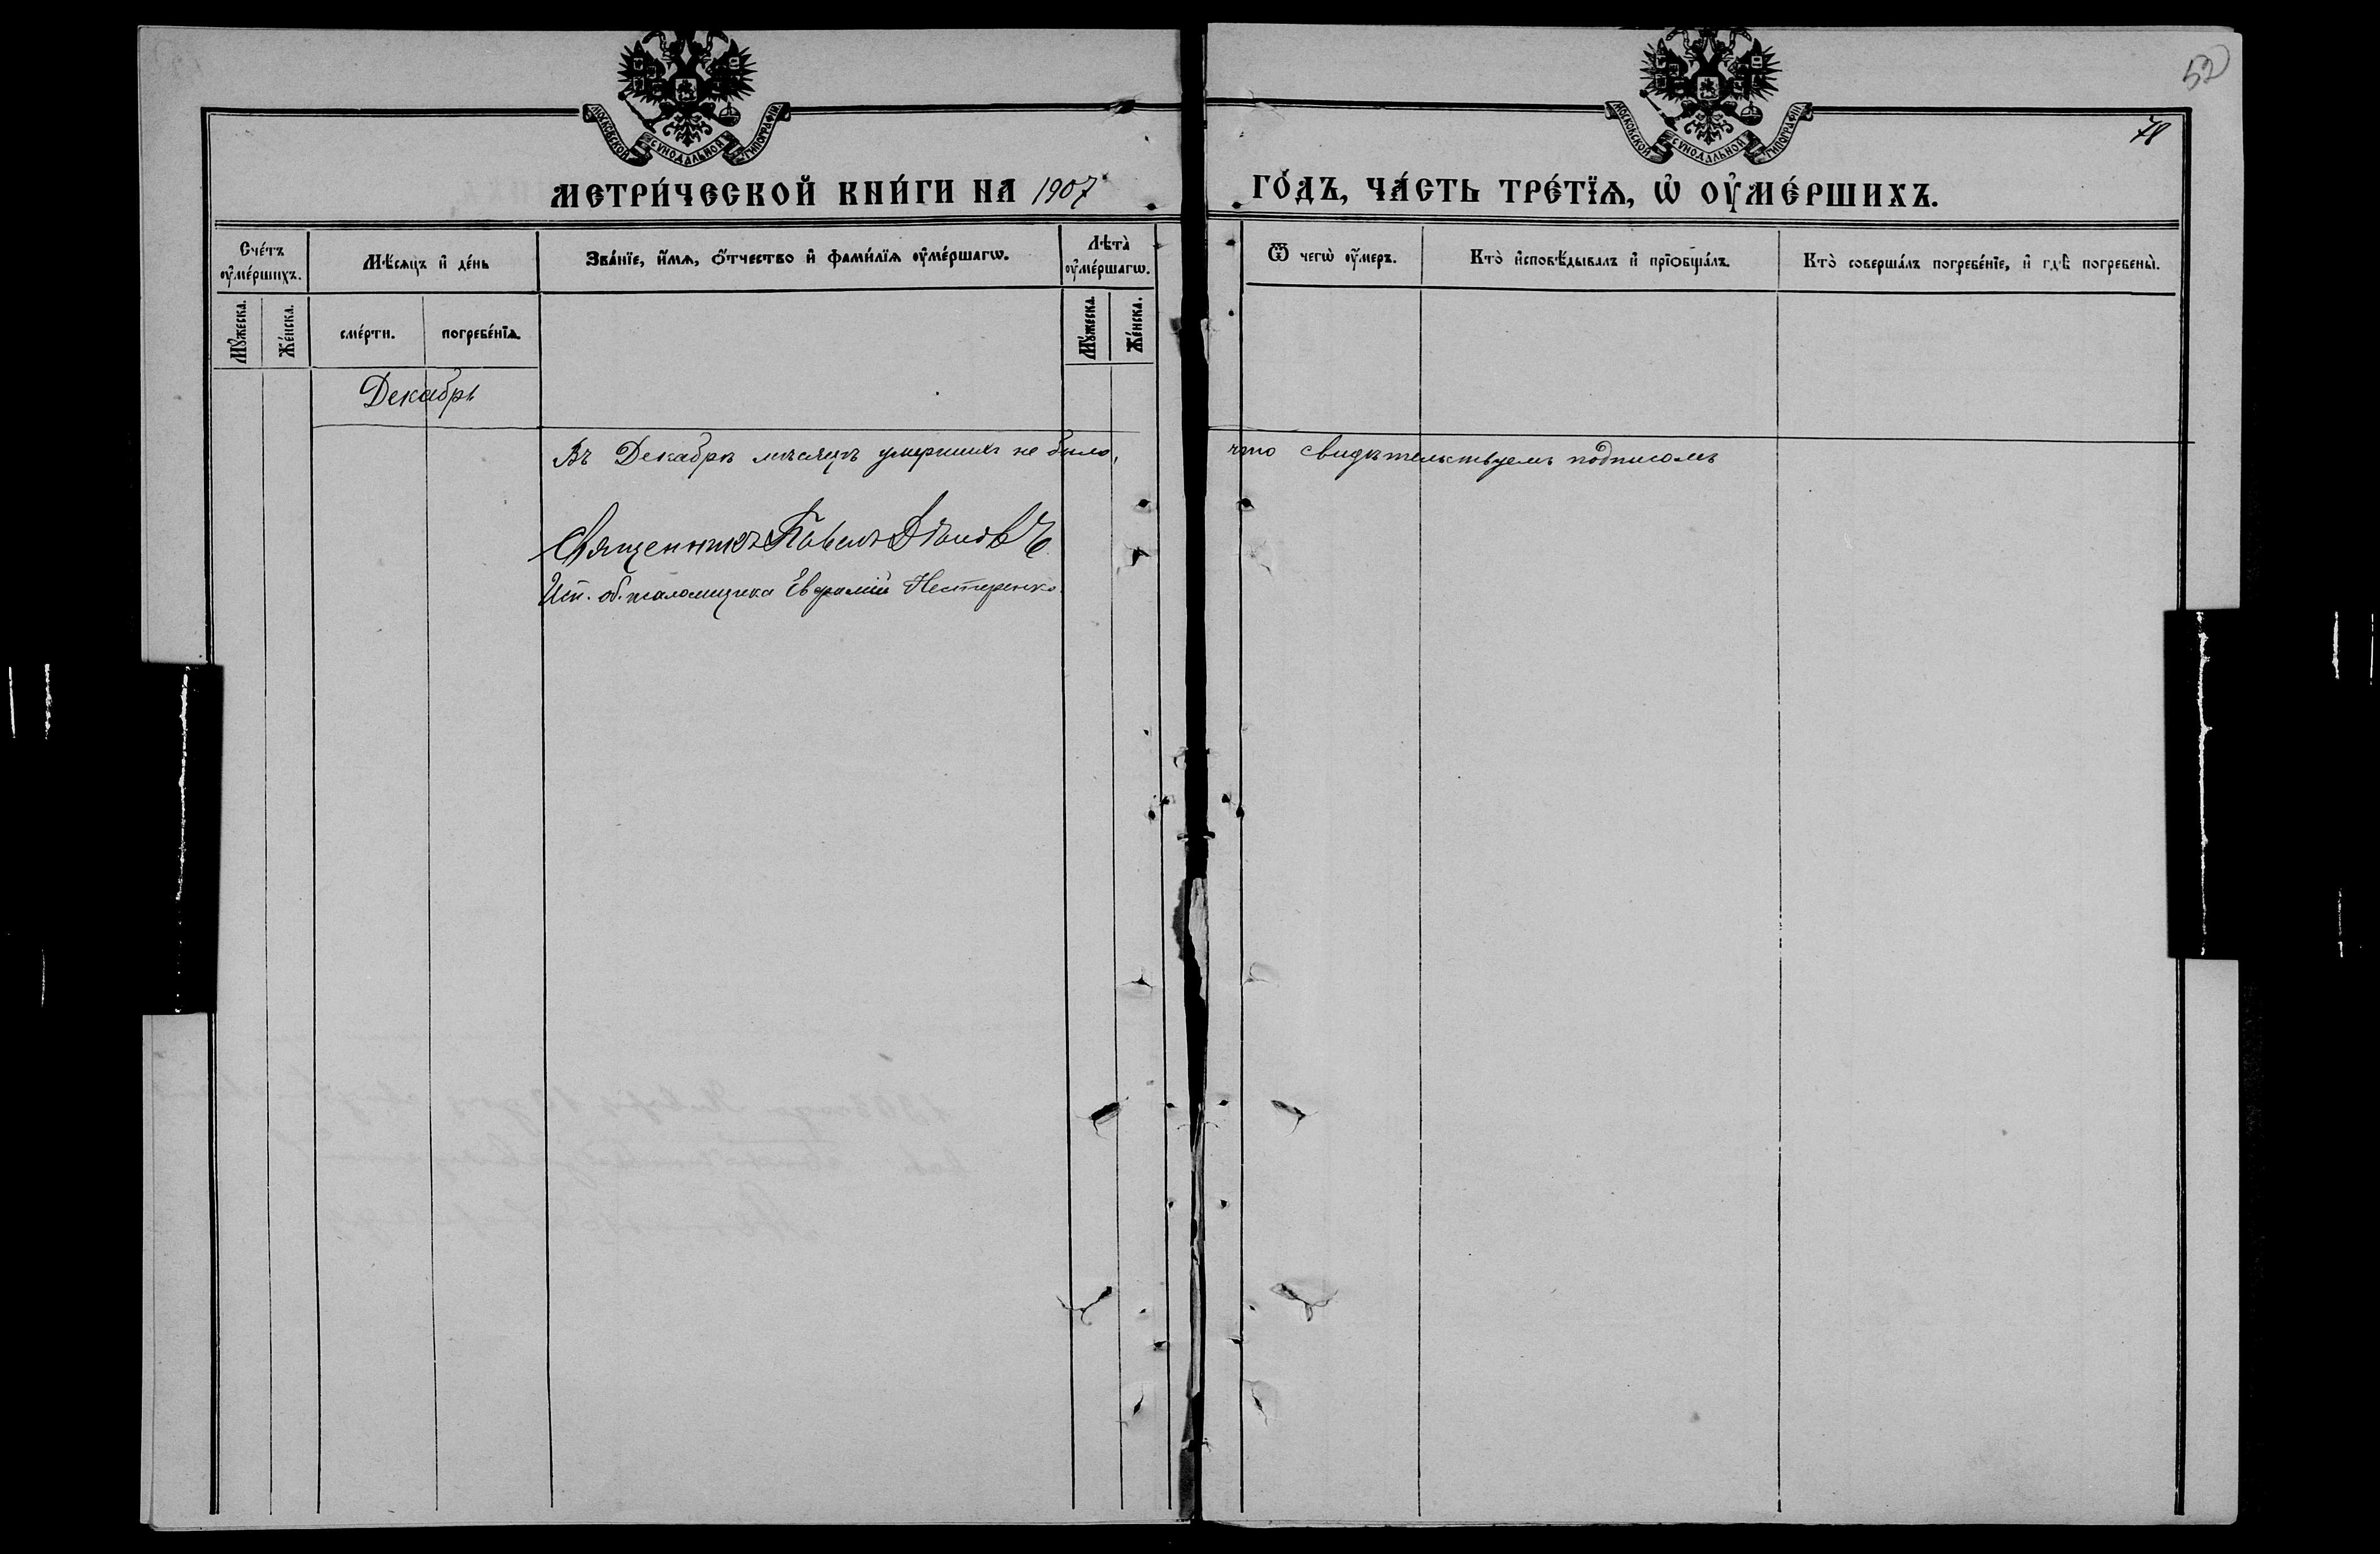 52
78
МОСКОВСКОЙ СУНОДАЛЬНОЙ ТИПОГРАФІИ
МОСКОВСКОЙ СУНОДАЛЬНОЙ ТИПОГРАФІИ
МЕТРИ́ЧЕСКОЙ КНИ́ГИ НА 1907 ГО́ДЪ, ЧА́СТЬ ТРЕ́ТЇѦ, Ѡ҆ ОУ҆МЕ́РШИХЪ.
Сче́тъ оу҆ме́ршихъ.
Мѣ́сяцъ и҆ де́нь
Зва́нїе, и҆́мѧ, ѻ҆́тчество и҆ фами́лїѧ оу҆ме́ршагѡ.
Лѣта̀ оу҆ме́ршагѡ.
Ѿ чегѡ̀ оу҆́меръ.
Кто̀ и҆сповѣ́дывалъ и҆ прїѡбща́лъ.
Кто̀ соверша́лъ погребе́нїе, и҆ гдѣ̀ погребены̀.
Мꙋ́жеска.
Же́нска.
сме́рти.
погребе́нїѧ.
Мꙋ́жеска.
Же́нска.
Декабрь
Въ Декабрѣ мѣсяцѣ умершихъ не было, что свидѣтельствуемъ подписомъ
Священникъ Павелъ
Исп. об. псаломщика Евфимій Нестеренко.